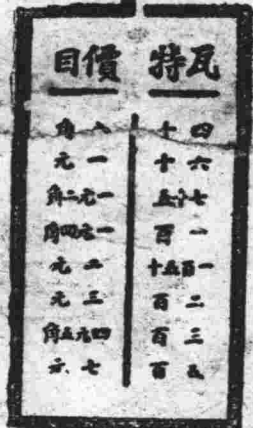 瓦特 價目
四十 八角
六十 一元
七十五 一元二角
一百 一元四角
一百五十 二元
二百 三元
三百 四元五角
五百 七元